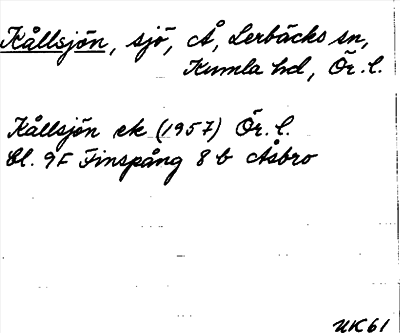 Kållsjön, sjö, Å, Lerbäcks sn,
Kumla hd, Ör. l.
Kållsjön ek (1957) Ör. l.
Bl. 9F Finspång 8 b Åsbro
UK 61